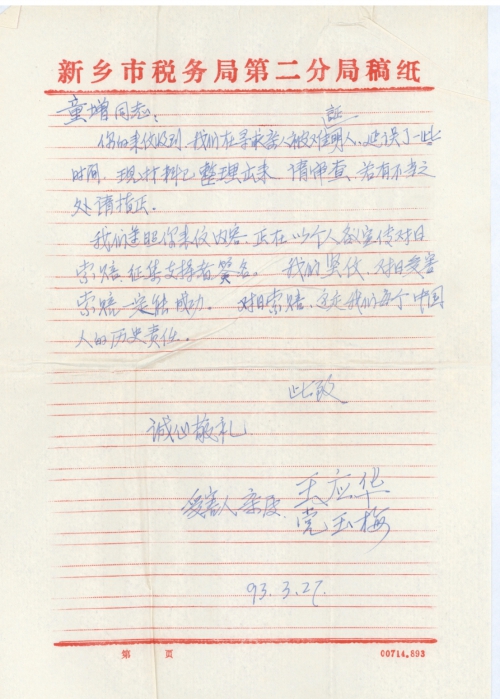 新乡市税务局第二分局稿纸
童增同志:
証
你的来信收到,我们在寻求亲人被难明人,延误了一些
时间,现材料已整理出来,请审查,若有不当之
处请指正。
我们遵照你来信内容,正在以个人名义宣传对日
索赔,征集支持者签名。我们坚信,对日受害
索赔一定能成功。对日索赔,这是我们每个中国
人的历史责任。
此致
诚心敬礼
受害人亲属 王应华
党玉梅
93.3.27.
第 页
00714.893